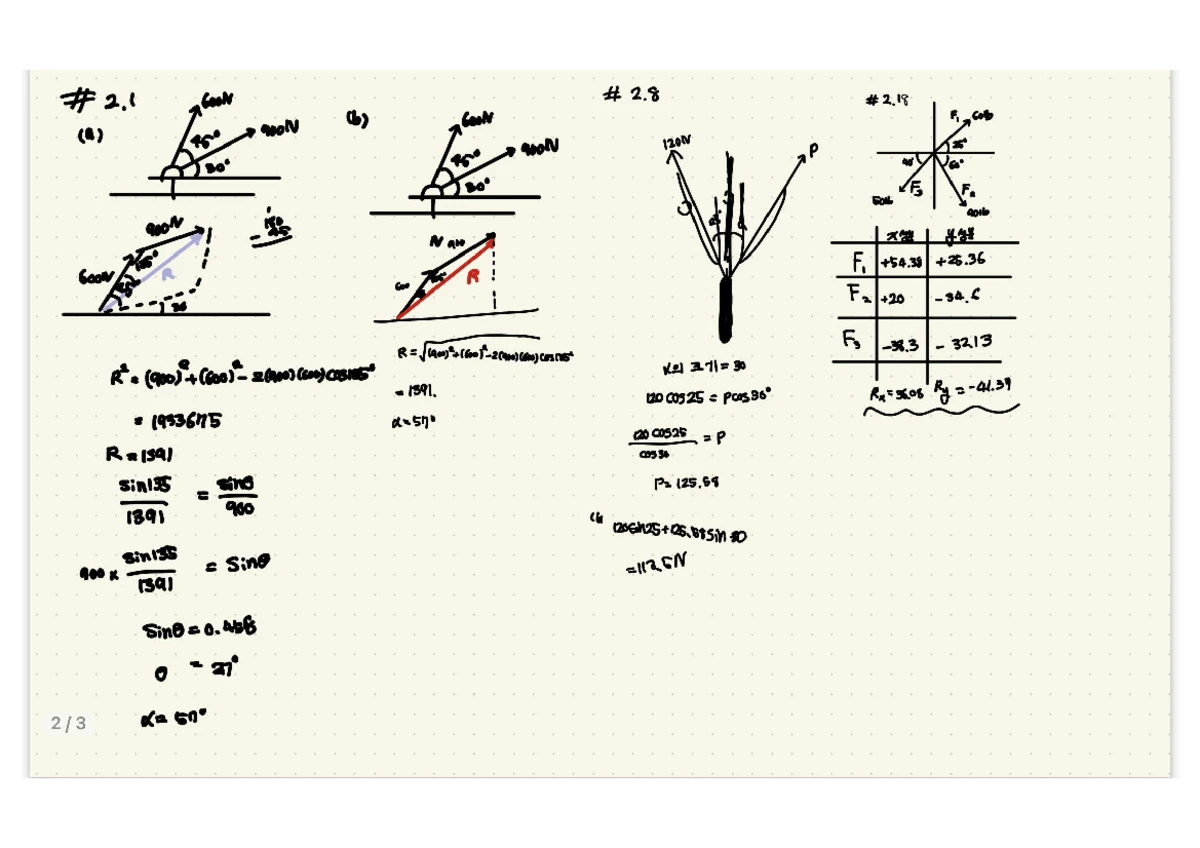 # 2.1
(a)
600N
900N
45°
30°
900N
600N
135°
R
45°
30
180
- 45
R² = (900)² + (600)² - 2(900)(600)cos135°
= 1933675
R = 1391
sin135 / 1391 = sinθ / 900
900 × sin135 / 1391 = sinθ
sinθ = 0.458
θ = 27°
α = 57°
(b)
600N
900N
45°
30°
N 900
600
R
R = √(900)² + (600)² - 2(900)(600)cos135°
= 1391.
α = 57°
# 2.8
120N
P
= 30
120 cos25 = Pcos30°
120 cos25 / cos30 = P
P = 125.58
120sin25 + 125.58sin30
= 113.5N
# 2.18
F₁ 60lb
25°
60°
F₃
50lb
F₂
40lb
x성분 y성분
F₁ +54.38 +25.36
F₂ +20 -34.6
F₃ -38.3 -32.13
Rx = 36.08 Ry = -41.39
2 / 3